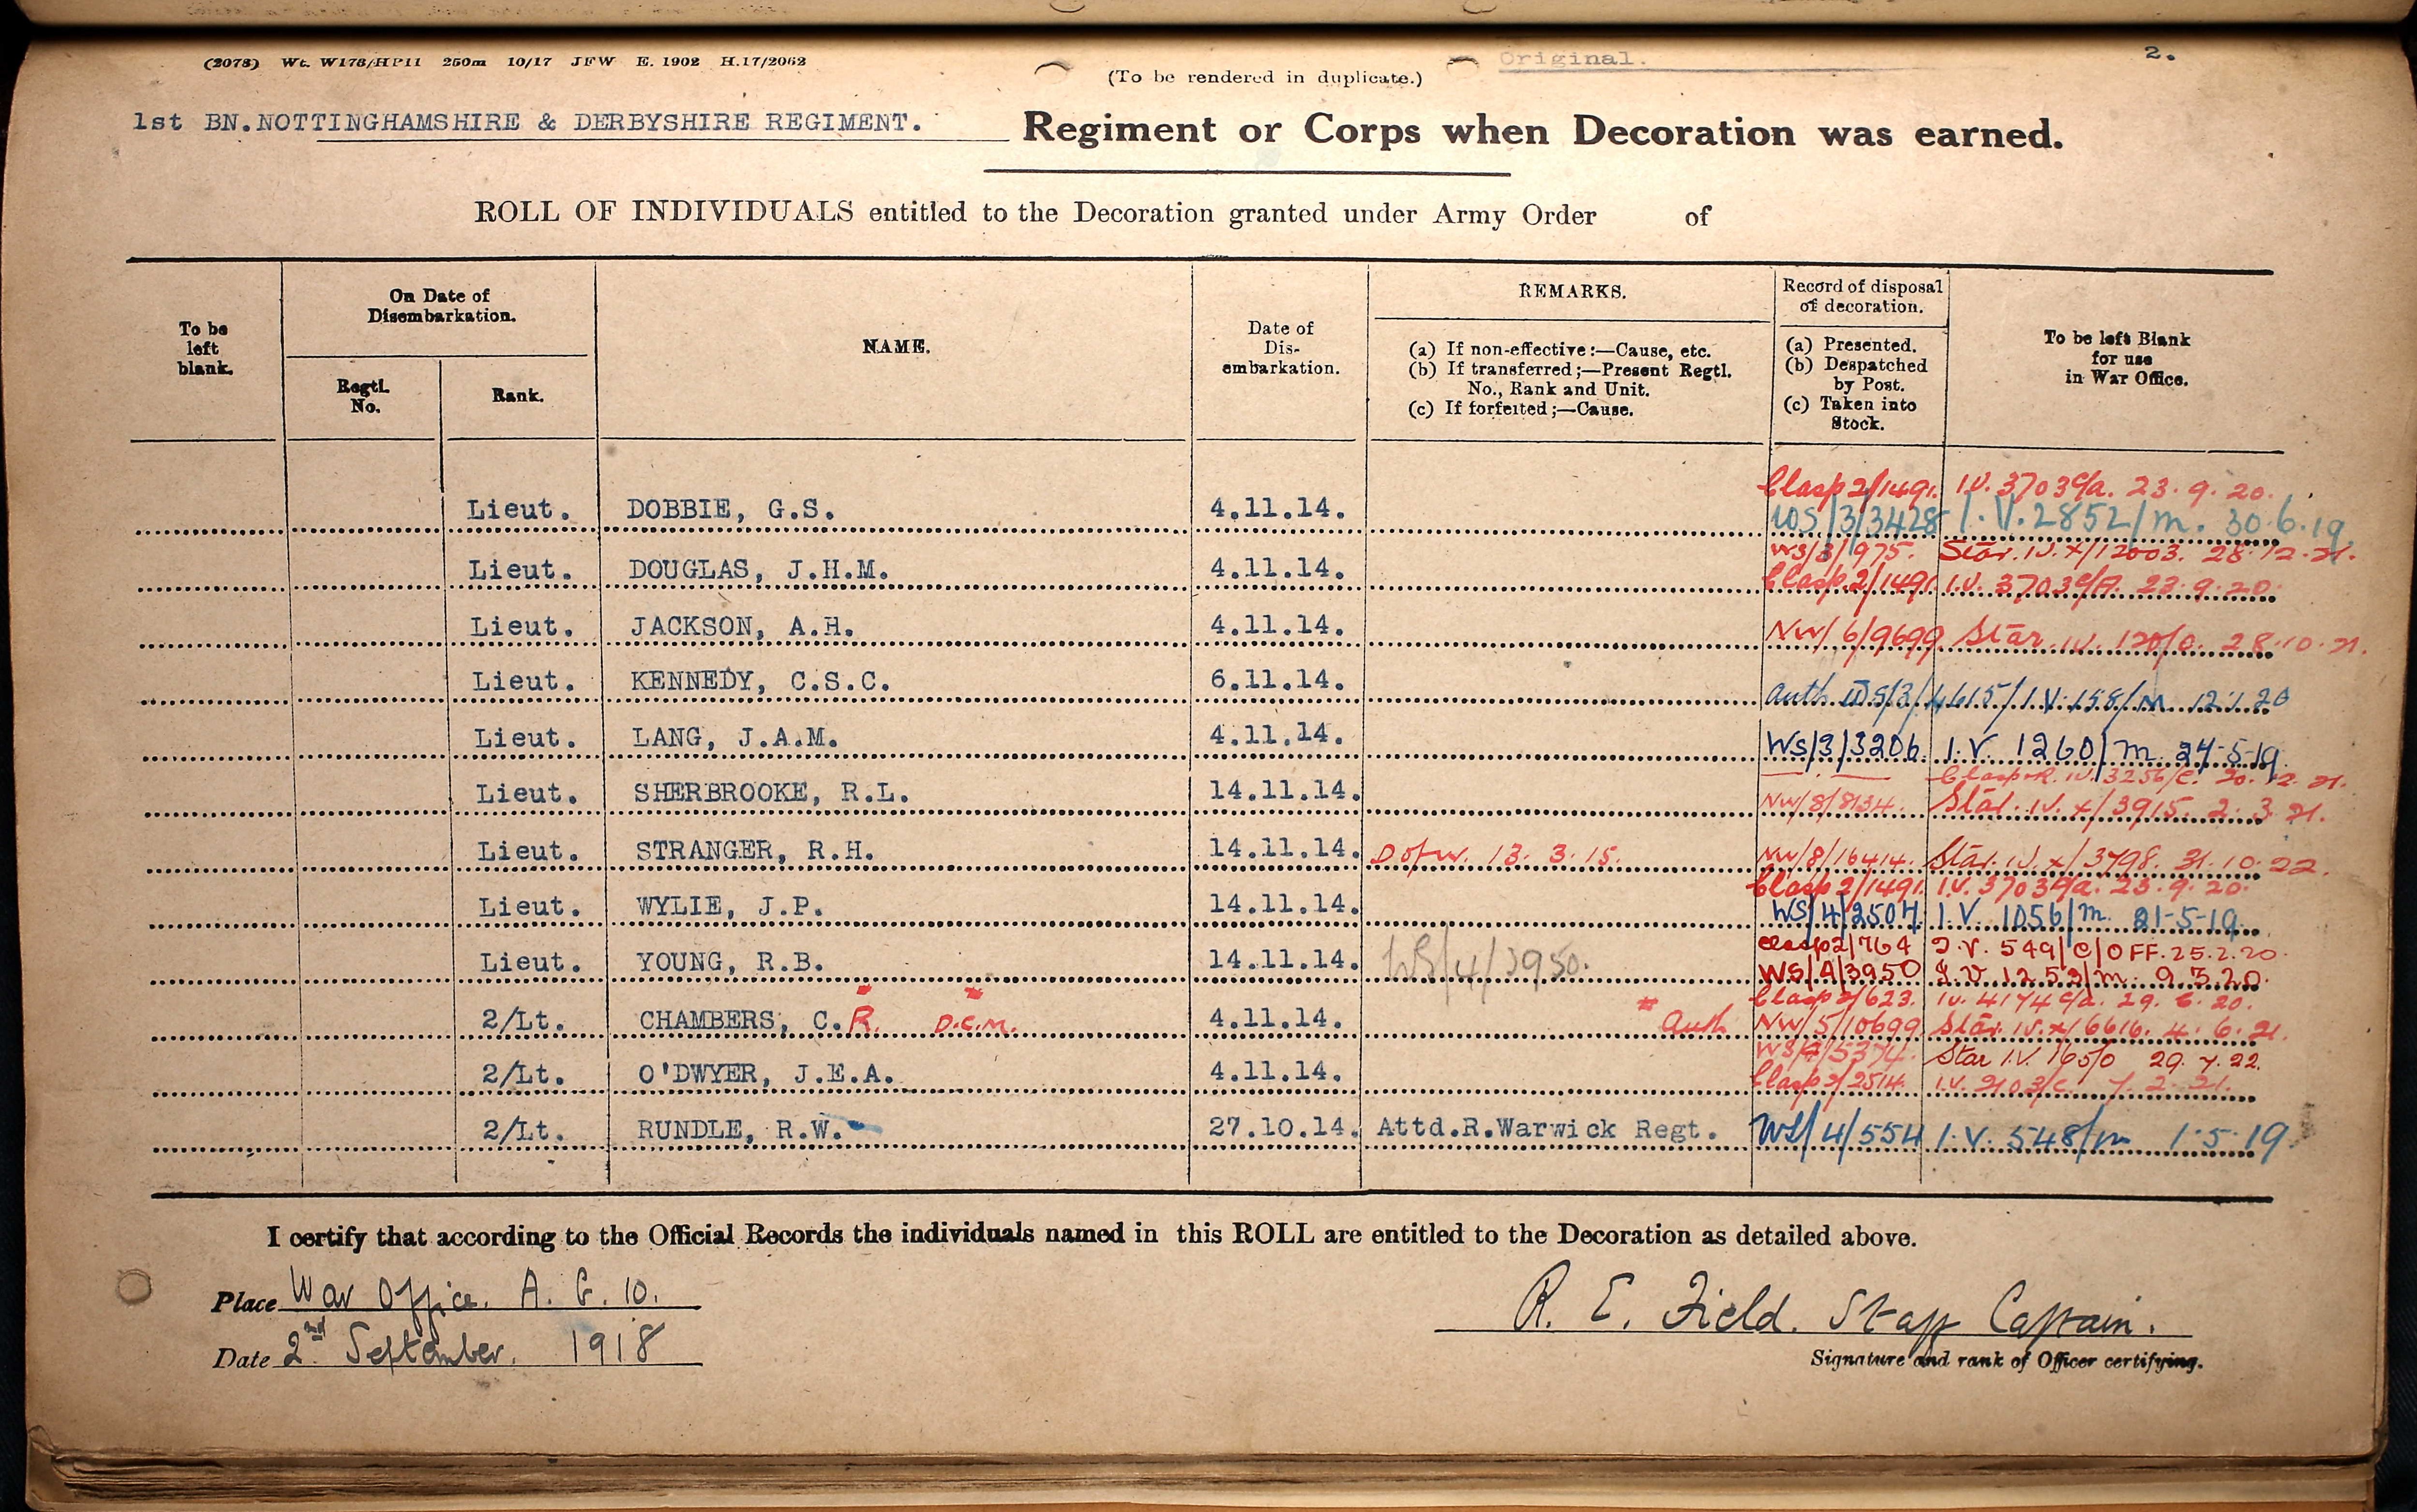 (2078) Wt. W178/HP11 250m 10/17 JFW E. 1902 H.17/2062
(To be rendered in duplicate.)
Original.
2.
1st BN.NOTTINGHAMSHIRE & DERBYSHIRE REGIMENT. Regiment or Corps when Decoration was earned.
ROLL OF INDIVIDUALS entitled to the Decoration granted under Army Order of
To be left blank.
On Date of Disembarkation.
Regtl. No.
Rank.
NAME.
Date of Dis-embarkation.
REMARKS.
(a) If non-effective:—Cause, etc.
(b) If transferred;—Present Regtl. No., Rank and Unit.
(c) If forfeited;—Cause.
Record of disposal of decoration.
(a) Presented.
(b) Despatched by Post.
(c) Taken into Stock.
To be left Blank for use in War Office.
Clasp 2/1491. I.V. 3703 C/a. 23.9.20.
Lieut. DOBBIE, G.S. 4.11.14. WS/3/3428 I.V.2852/M. 30.6.19.
WS/3/975. Star. IV. X/12003. 28.12.21.
Lieut. DOUGLAS, J.H.M. 4.11.14. Clasp 2/1491. I.V. 3703 C/A. 23.9.20.
Lieut. JACKSON, A.H. 4.11.14. NW/6/9699 Star. IV. 120/0. 28.10.21.
Lieut. KENNEDY, C.S.C. 6.11.14. Auth WS/3/4615/I.V.158/M 12.1.20
Lieut. LANG, J.A.M. 4.11.14. WS/3/3206. I.V. 1260/M. 24-5-19.
Clasp R. IV. 3256/C. 20.12.21.
Lieut. SHERBROOKE, R.L. 14.11.14. NW/8/8134. Star. IV. X/3915. 2.3.21.
Lieut. STRANGER, R.H. 14.11.14. D of W. 13.3.15. NW/8/16414. Star. IV. X/3798. 31.10.22.
Clasp 2/1491. I.V. 3703 C/a. 23.9.20.
Lieut. WYLIE, J.P. 14.11.14. WS/4/2504 I.V. 1056/M. 21-5-19.
Clasp 2/764 I.V. 549/C/OFF. 25.2.20.
Lieut. YOUNG, R.B. 14.11.14. WS/4/3950. WS/4/3950 I.V. 1253/M. 9.3.20.
Clasp 2/623. IV. 4174 C/a. 29.6.20.
2/Lt. CHAMBERS, C.R. D.C.M. 4.11.14. Auth NW/5/10699 Star. IV. X/6616. 4.6.21.
WS/4/5374. Star I.V. 165/0 29.7.22.
2/Lt. O'DWYER, J.E.A. 4.11.14. Clasp 2/2514. I.V. 203/C. 7.2.21.
2/Lt. RUNDLE, R.W. 27.10.14. Attd.R.Warwick Regt. WS/4/554 I.V. 548/M 1.5.19
I certify that according to the Official Records the individuals named in this ROLL are entitled to the Decoration as detailed above.
Place War Office. A. G. 10.
Date 2nd September. 1918
R. E. Field. Staff Captain.
Signature and rank of Officer certifying.